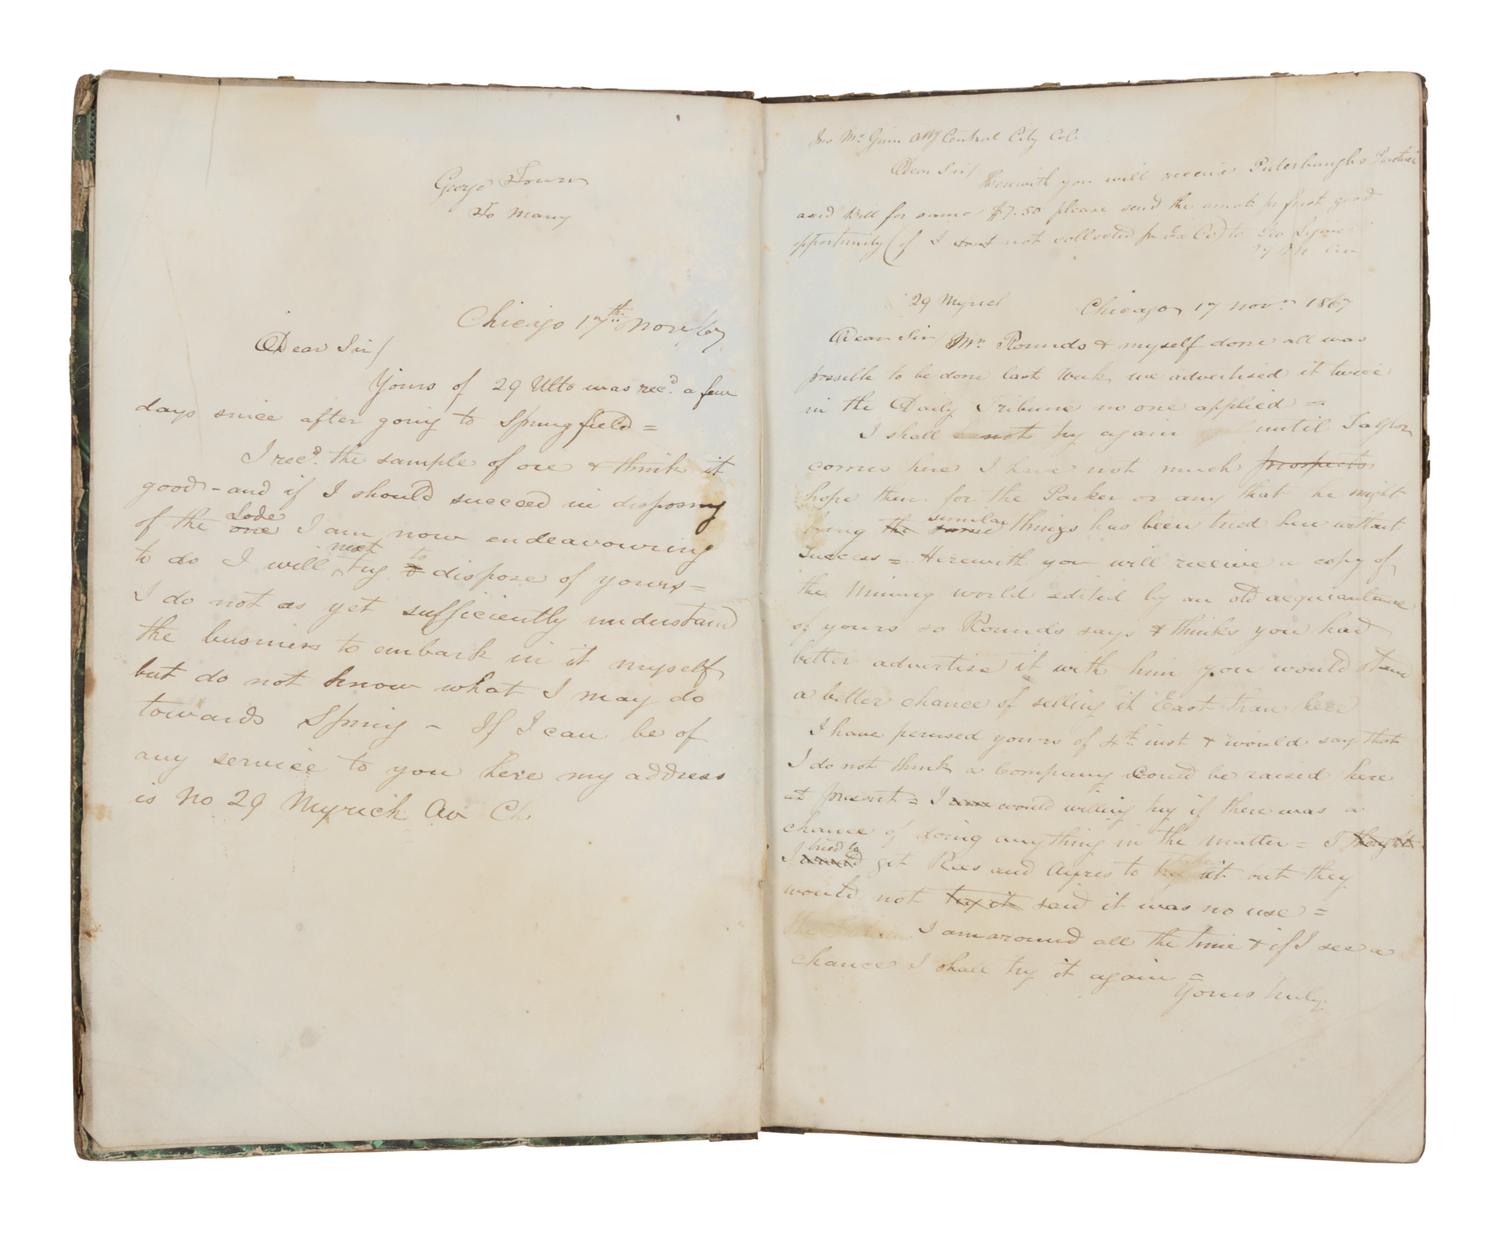 Town
to many
Chicago 17th Nov /67
Dear Sir/
Yours of 29 Ulto was recd. a few
days since after going to Springfield =
I recd. the sample of ore & think it
good - and if I should succeed in disposing
of the one Lode I am now endeavouring
to do I will next try to dispose of yours =
I do not as yet sufficiently understand
the business to embark in it myself
but do not know what I may do
towards Spring - If I can be of
any service to you here my address
is No 29 Myrick Av Ch.
Mc Ginn Atty Central City Col.
Dear Sir/ Herewith you will receive Puterbaugh's
and bill for same $7.50 please send the amt pr first good
opportunity (if not collected pr Ex Co) to Geo
29 Myrick Chicago 17 Novr 1867
Dear Sir Mr. Rounds & myself done all was
possible to be done last Week, we advertised it twice
in the Daily Tribune no one applied =
I shall not try again until Taylor
comes here I have not much prospects
hope then for the Parker or any that he might
bring the same similar things has been tried here without
success = Herewith you will receive a copy of
the Mining world edited by an old acquaintance
of yours so Rounds says & thinks you had
better advertise it with him you would stan
a better chance of selling it East than here
I have perused yours of 4th inst & would say that
I do not think a Company could be raised here
at present = I would willing try if there was a
chance of doing anything in the matter = I thought
I tried to get Rees and Ayres to it but they
would not try it said it was no use =
I am around all the time & if I see a
chance I shall try it again =
Yours truly